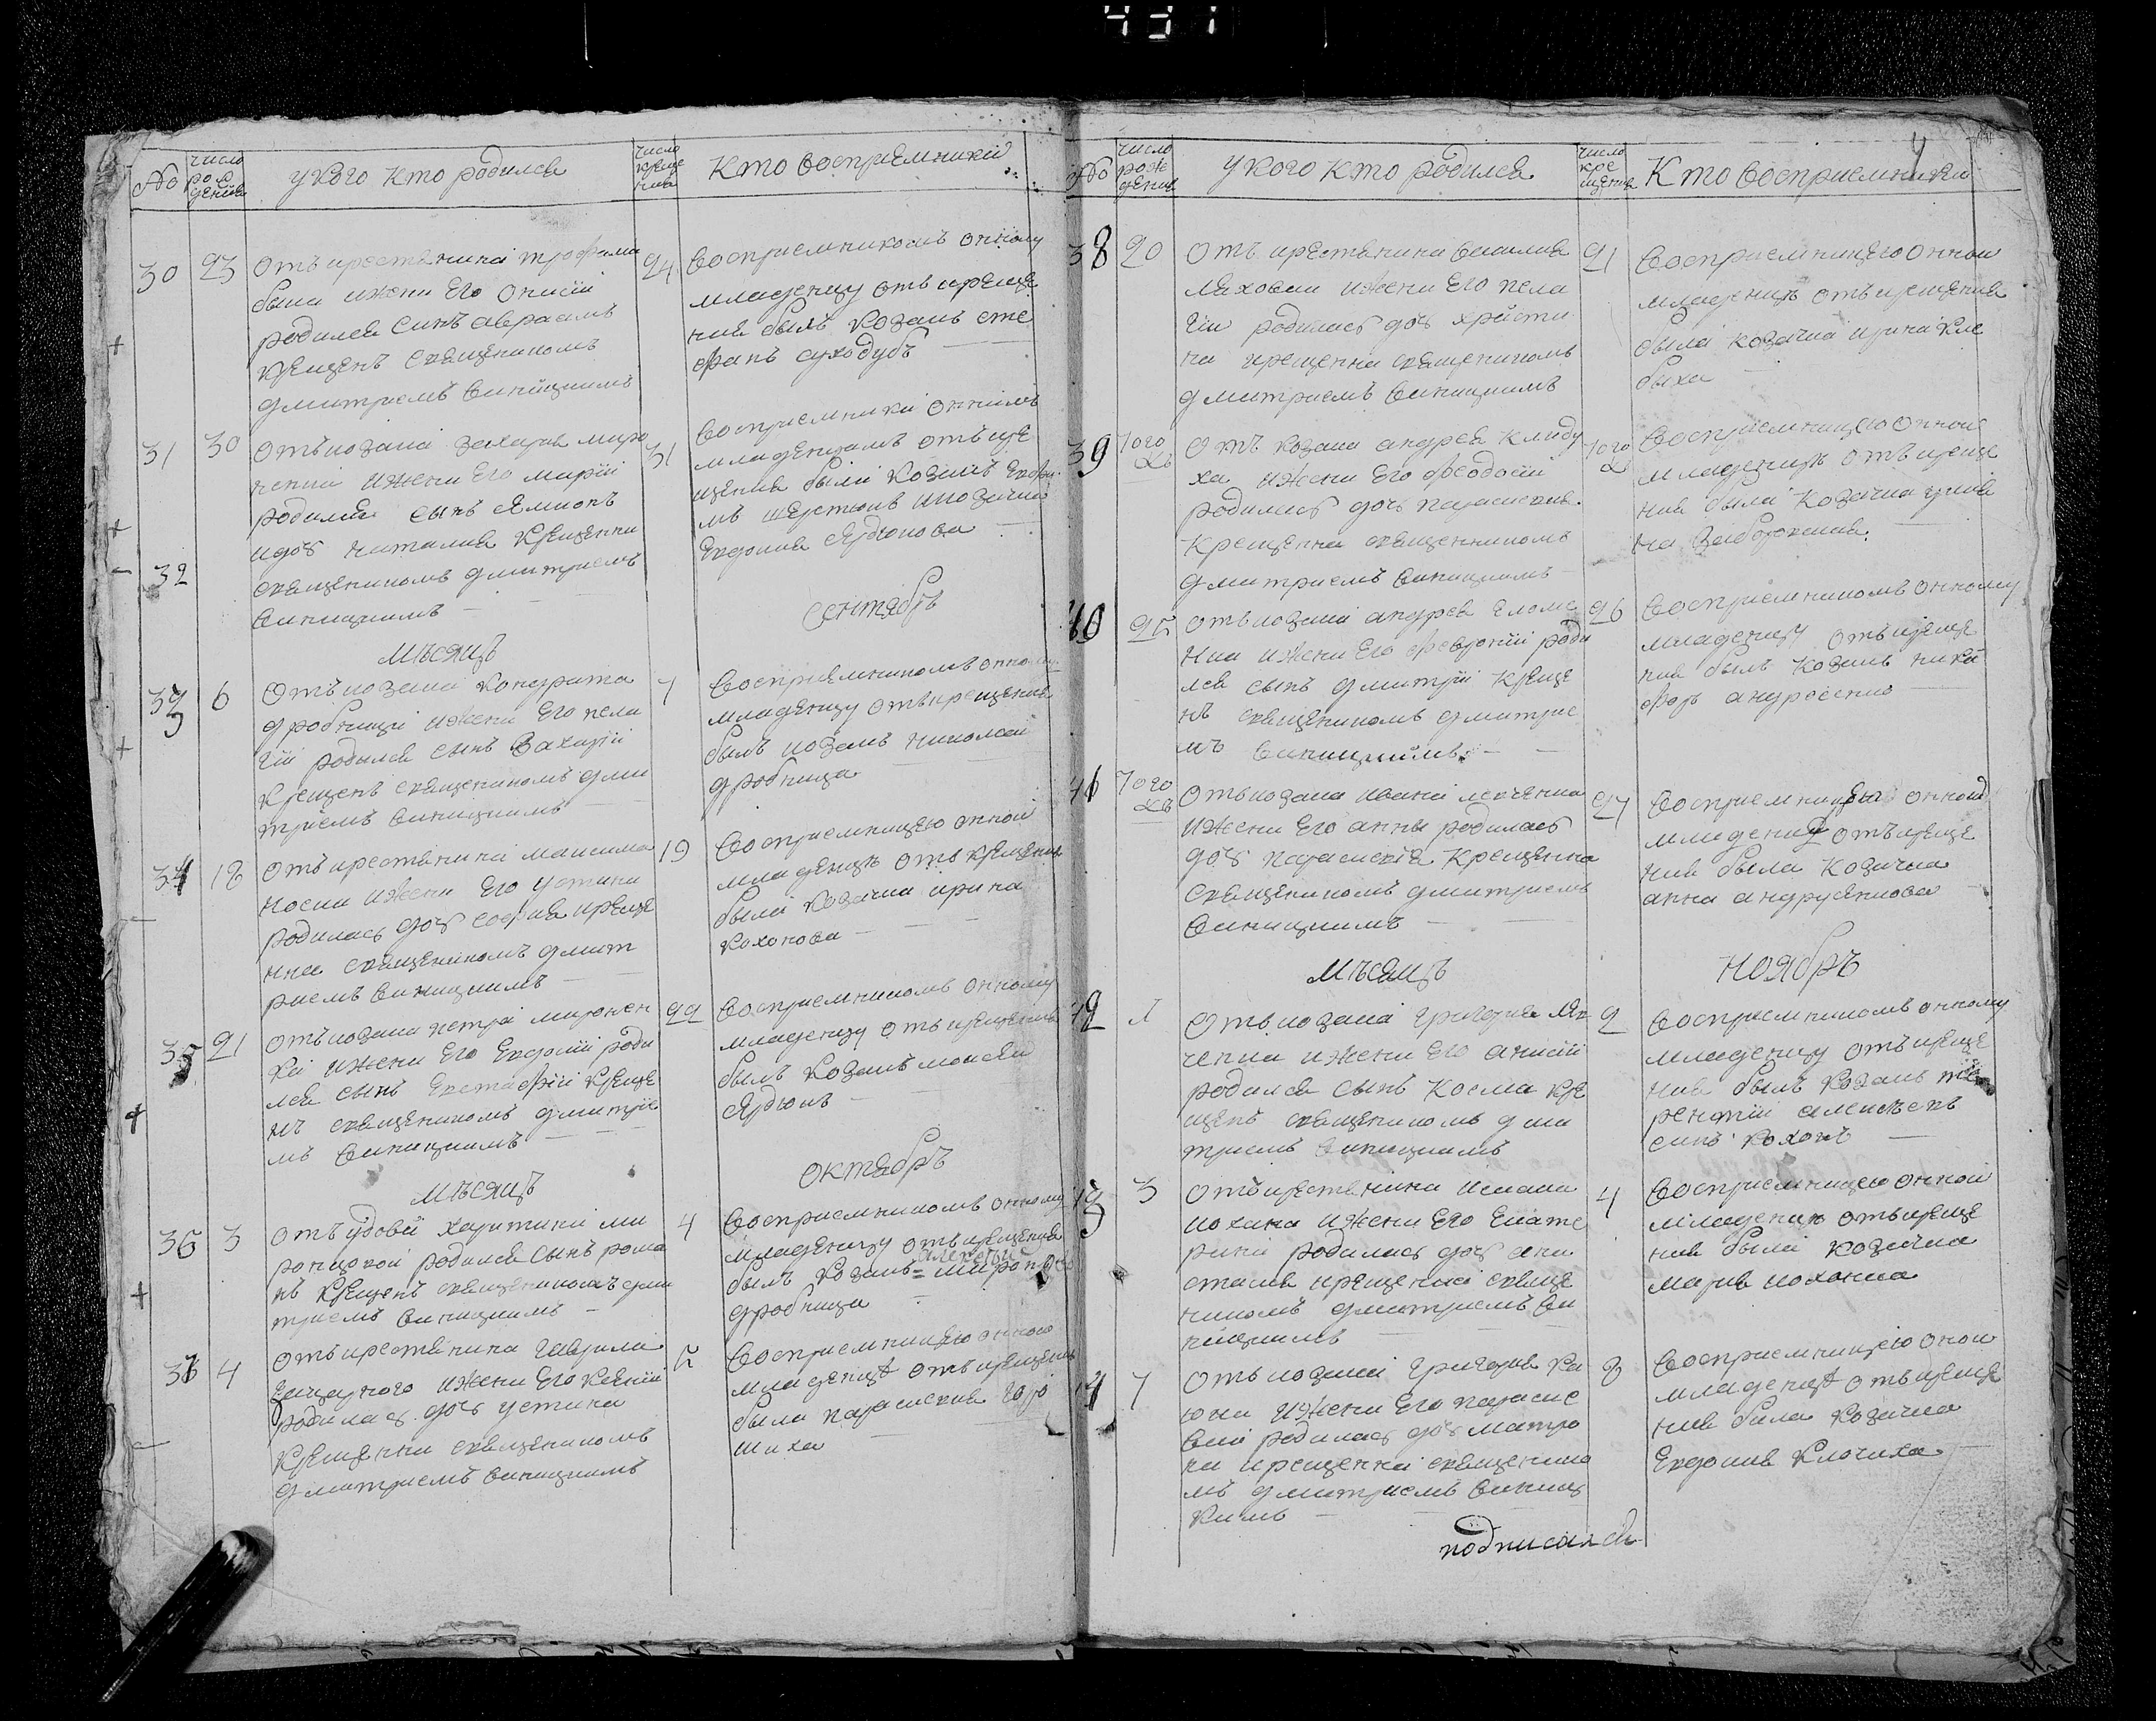 431
№
число
рож
дения
у кого кто родился
число
креще
ния
Кто восприемники
30 23 Отъ крестянина трофима 24
быша и жени Его Онисіи
родился синъ авраамъ
крещенъ священикомъ
дмитриемъ виницкимъ
Восприемникомъ онному
младенцу отъ креще
ния былъ козакъ сте
фанъ суходубъ
31 30 Отъ козака захария миро 31
ненка и жени Его маріи
родился сынъ Симионъ
и дочь наталия крещенни
32
священикомъ дмитриемъ
виницкимъ
Восприемники оннимъ
младенцамъ отъ кре
щения были козакъ
и козачка
Евдокия Сердюкова
мѣсяцъ
Сентябрь
33 6 Отъ козака кондрата 7
дробници и жени Его пела
гіи родился сынъ Захарій
крещенъ священикомъ дми
тріемъ виницкимъ
Восприемникомъ онному
младенцу отъ крещения
былъ козакъ николай
дробница
34 18 Отъ крестянина максима 19
носки и жени Его устини
родилась дочь софия креще
нна священикомъ дмит
риемъ виницкимъ
Восприемницею онной
младенцѣ отъ крещения
были козачка ирина
кохонова
35 21 Отъ козака петра миронен 22
ка и жени Его Евдокіи роди
лся сынъ Евстафій креще
нъ священикомъ дмитріе
мъ виницкимъ
Восприемникомъ онному
младенцу отъ крещения
былъ козакъ моисей
Сердюкъ
мѣсяцъ
октябръ
36 3 Отъ удови харитини ми 4
ронцовой родился сынъ рома
нъ крещенъ священикомъ дми
триемъ виницкимъ
Восприемникомъ онному
младенцу отъ крещения
былъ козакъ
дробница
37 4 Отъ крестянина гаврила 5
и жени Его ксении
родилась дочь устина
крещенна священикомъ
дмитриемъ виницкимъ
Восприемницею онной
младенцѣ отъ крещения
была параскевия горо
шиха
№
число
рож
дения
у кого кто родился
число
кре
щения
Кто восприемники
38 20 Отъ крестянина василия 21
ляховки и жени Его пела
гіи родилась дочь христи
на крещенна священикомъ
дмитриемъ виницкимъ
Восприемницею онной
младенцѣ отъ крещения
была козачка ирина кле
быха
39 того жъ Отъ козака андрея клибу того
ха и жени Его феодосіи
родилась дочь параскевия
крещенна священникомъ
дмитриемъ виницкимъ
Восприемницею онной
младенцѣ отъ креще
ния была козачка улия
на заборскаия
40 25 Отъ козака андрея 26
нка и жени Его февроніи роди
лся сынъ дмитрій креще
нъ священикомъ дмитрие
мъ виницкимъ
Восприемникомъ онному
младенцу отъ креще
ния былъ козакъ ники
форъ андросенко
41 того жъ Отъ козака ивана левченка 27
и жени Его анны родилась
дочь параскевія крещенна
священикомъ дмитриемъ
виницкимъ
Восприемницею онной
младенцѣ отъ креще
ния была козачка
анна андрусенкова
мѣсяцъ
ноябръ
42 1 Отъ козака григория 2
ченка и жени Его анисіи
родился сынъ косма кре
щенъ священикомъ дми
триемъ виницкимъ
Восприемникомъ онному
младенцу отъ креще
ния былъ козакъ те
рентій алексѣевъ
синъ кохонъ
43 3 Отъ крестянина исаака 4
кохана и жени Его Екате
рини родилась дочь ана
стасия крещенна свяще
никомъ дмитриемъ ви
ницкимъ
Восприемницею онной
младенцѣ отъ креще
ния были козачка
мария коханка
44 7 Отъ козака григория кл 8
юки и жени Его параске
вии родилась дочь матро
на крещенна священико
мъ дмитриемъ виниц
кимъ
Восприемницею онной
младенцѣ отъ креще
ния была козачка
Евдокия ключиха
подписался